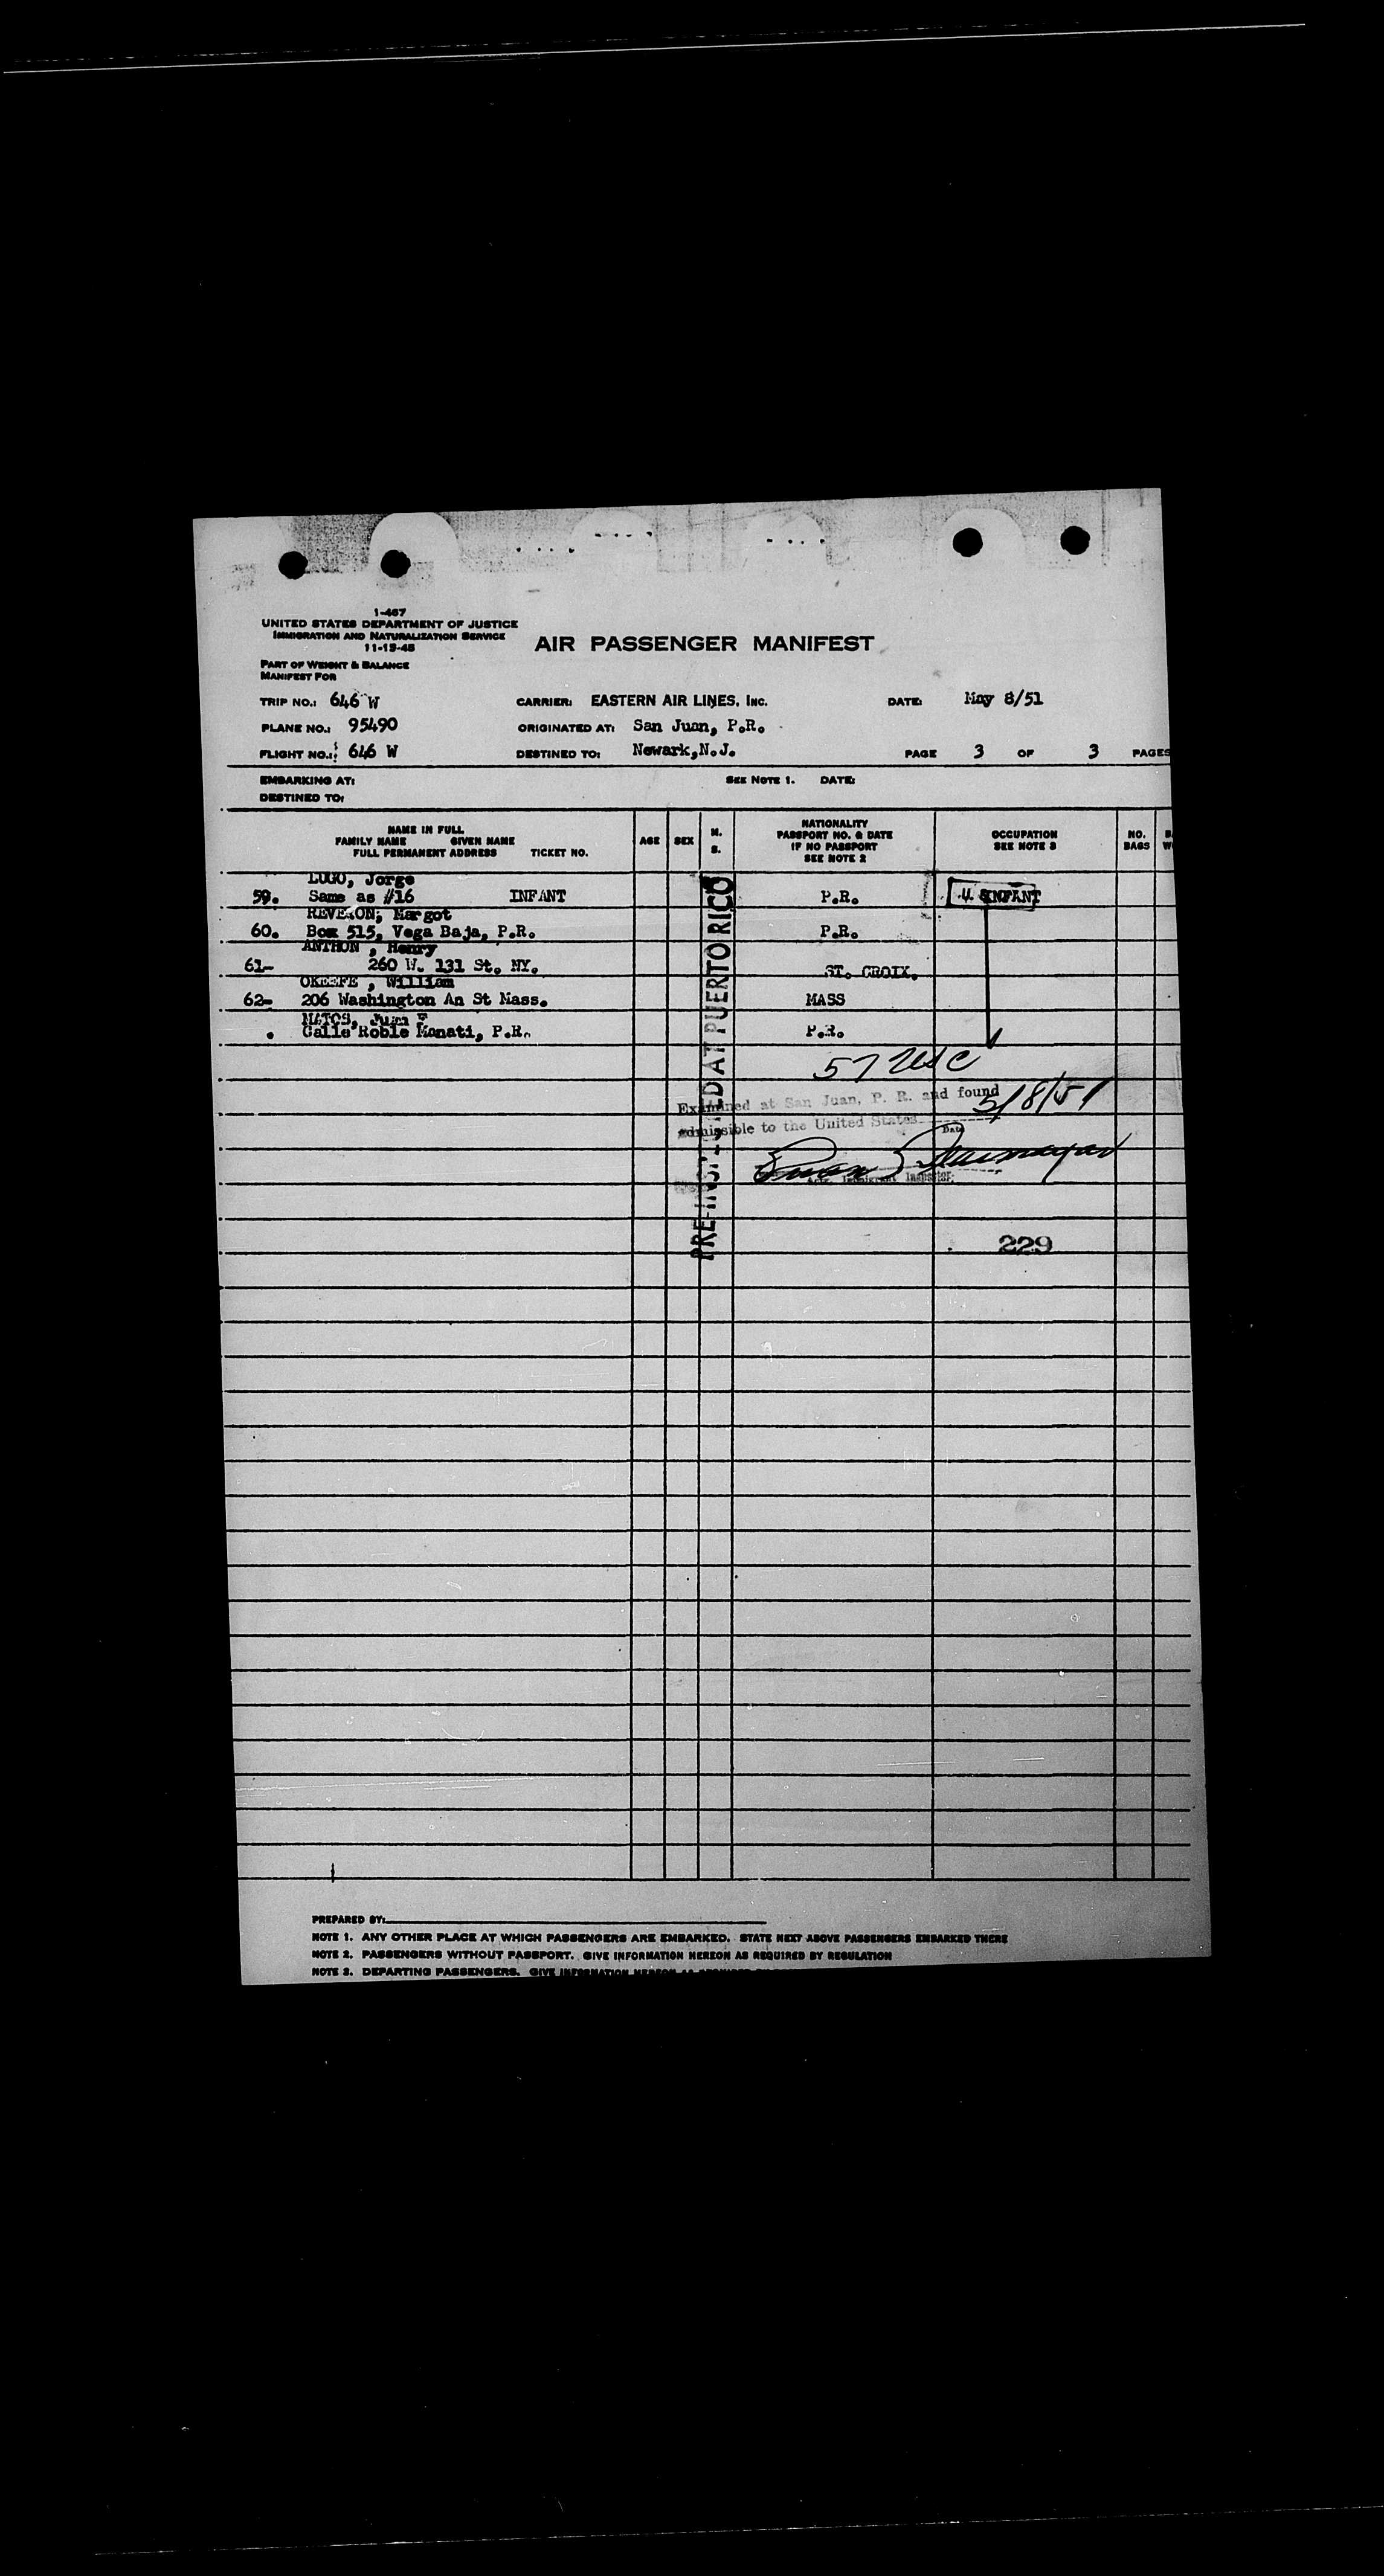 1-467
UNITED STATES DEPARTMENT OF JUSTICE
IMMIGRATION AND NATURALIZATION SERVICE
11-15-45
AIR PASSENGER MANIFEST
PART OF WEIGHT & BALANCE
MANIFEST FOR
TRIP NO.: 646 W CARRIER: EASTERN AIR LINES, INC. DATE: May 8/51
PLANE NO.: 95490 ORIGINATED AT: San Juan, P.R.
FLIGHT NO.: 646 W DESTINED TO: Newark,N.J. PAGE 3 OF 3 PAGES
EMBARKING AT: SEE NOTE 1. DATE:
DESTINED TO:
NAME IN FULL
FAMILY NAME GIVEN NAME
FULL PERMANENT ADDRESS TICKET NO.
AGE SEX M. S.
NATIONALITY
PASSPORT NO. & DATE
IF NO PASSPORT
SEE NOTE 2
OCCUPATION
SEE NOTE 3
NO.
BAGS
LUGO, Jorge
59. Same as #16 INFANT P.R. INFANT
Margot
60. Box 515, Vega Baja, P.R. P.R.
ANTHON , Henry
61- 260 W. 131 St. NY. ST. CROIX.
OKEEFE , William
62- 206 Washington An St Mass. MASS
MATOS, Juan F
. Calle Roble Manati, P.R. P.R.
PRE-INSPECTED AT PUERTO RICO
57 USC
Examined at San Juan, P. R. and found
admissible to the United States 5/8/51
Date
Immigrant Inspector.
229
PREPARED BY:
NOTE 1. ANY OTHER PLACE AT WHICH PASSENGERS ARE EMBARKED. STATE NEXT ABOVE PASSENGERS EMBARKED THERE
NOTE 2. PASSENGERS WITHOUT PASSPORT. GIVE INFORMATION HEREON AS REQUIRED BY REGULATION
NOTE 3. DEPARTING PASSENGERS. GIVE INFORMATION HEREON AS